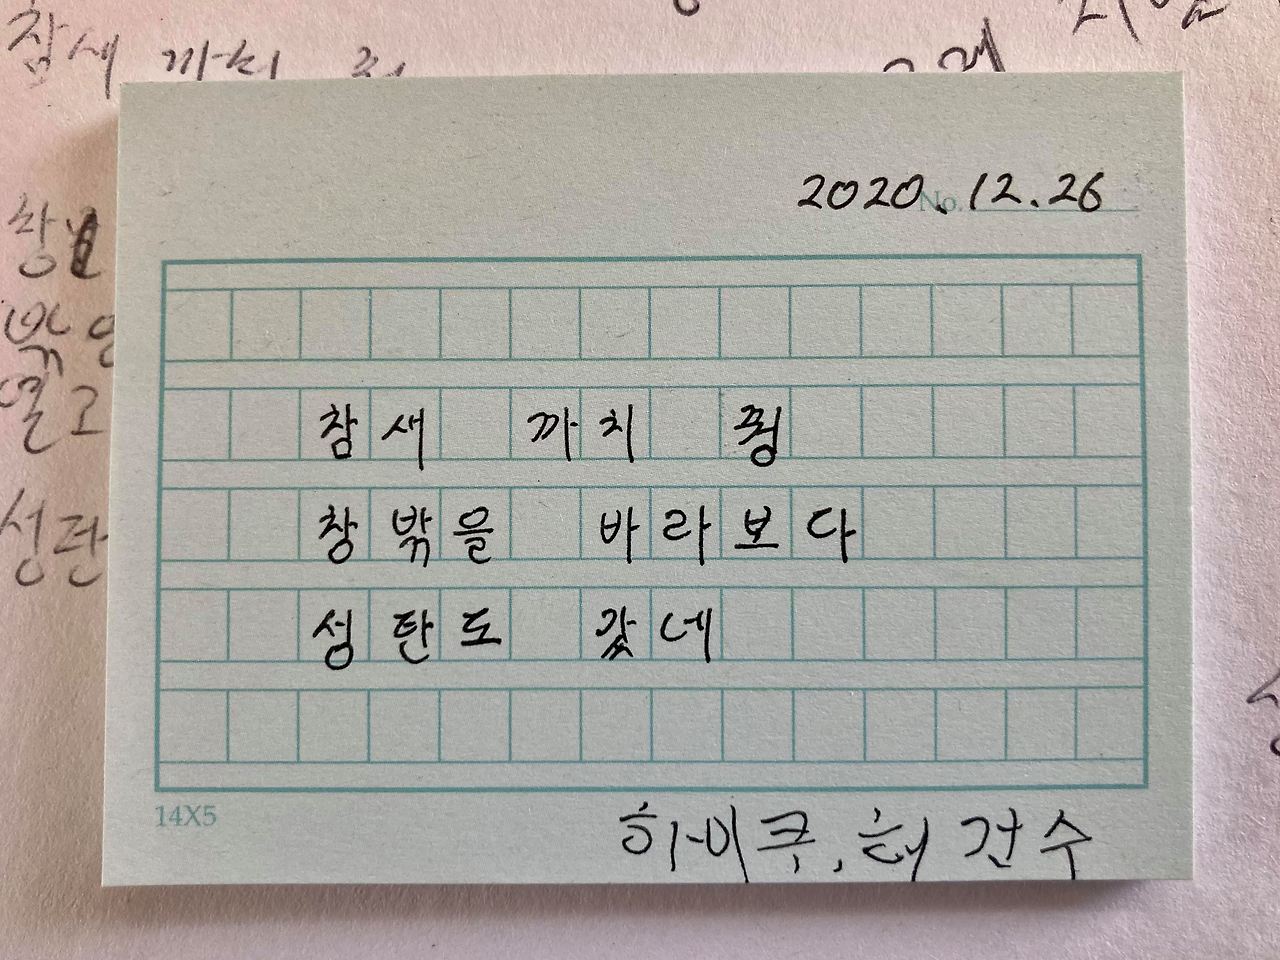 참새 까치
2020.12.26
No.
참새 까치 꿩
창밖을 바라보다
성탄도 갔네
14X5
하이쿠, 허건수
열고
성탄